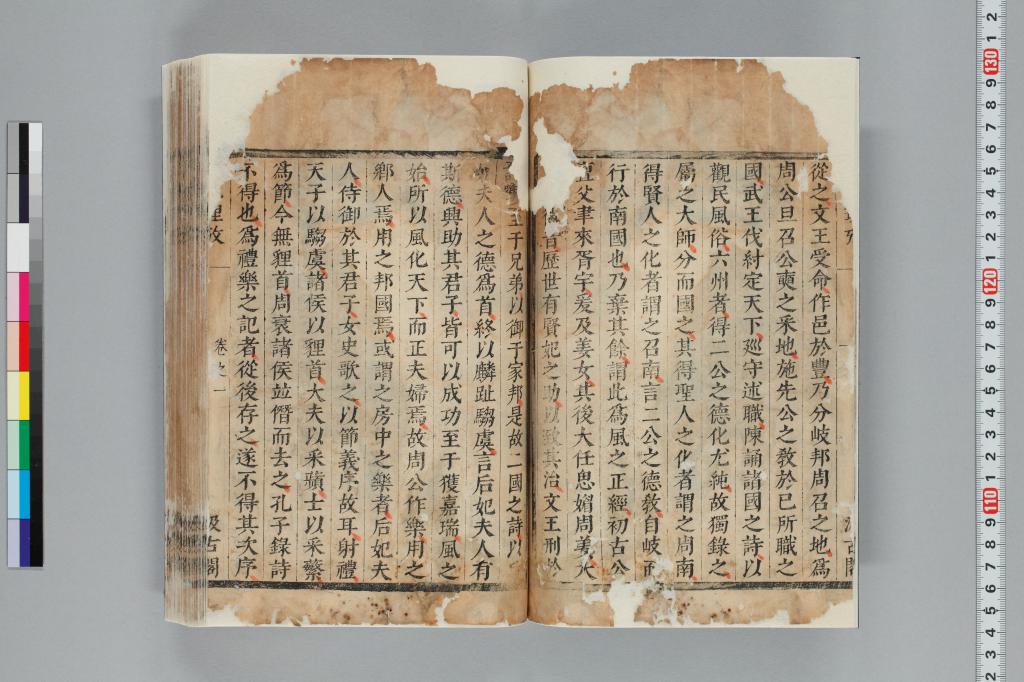 從之文王受命作邑於豐乃分岐邦周召之地爲
周公旦召公奭之采地施先公之敎於已所職之
國武王伐紂定天下廵守述職陳誦諸國之詩以
觀民風俗六州者得二公之德化尤純故獨錄之
屬之大師分而國之其得聖人之化者謂之周南
得賢人之化者謂之召南言二公之德敎自岐而
行於南國也乃棄其餘謂此爲風之正經初古公
亶父聿來胥宇爰及姜女其後大任思媚周姜大
徽音歷世有賢妃之助以致其治文王刑於
至于兄弟以御于家邦是故二國之詩以
夫人之德爲首終以麟趾騶虞言后妃夫人有
斯德興助其君子皆可以成功至于獲嘉瑞風之
始所以風化天下而正夫婦焉故周公作樂用之
鄉人焉用之邦國焉或謂之房中之樂者后妃夫
人侍御於其君子女史歌之以節義序故耳射禮
天子以騶虞諸侯以貍首大夫以采蘋士以采蘩
爲節今無貍首周衰諸侯並僭而去之孔子錄詩
不得也爲禮樂之記者從後存之遂不得其次序
卷之一
汲古閣